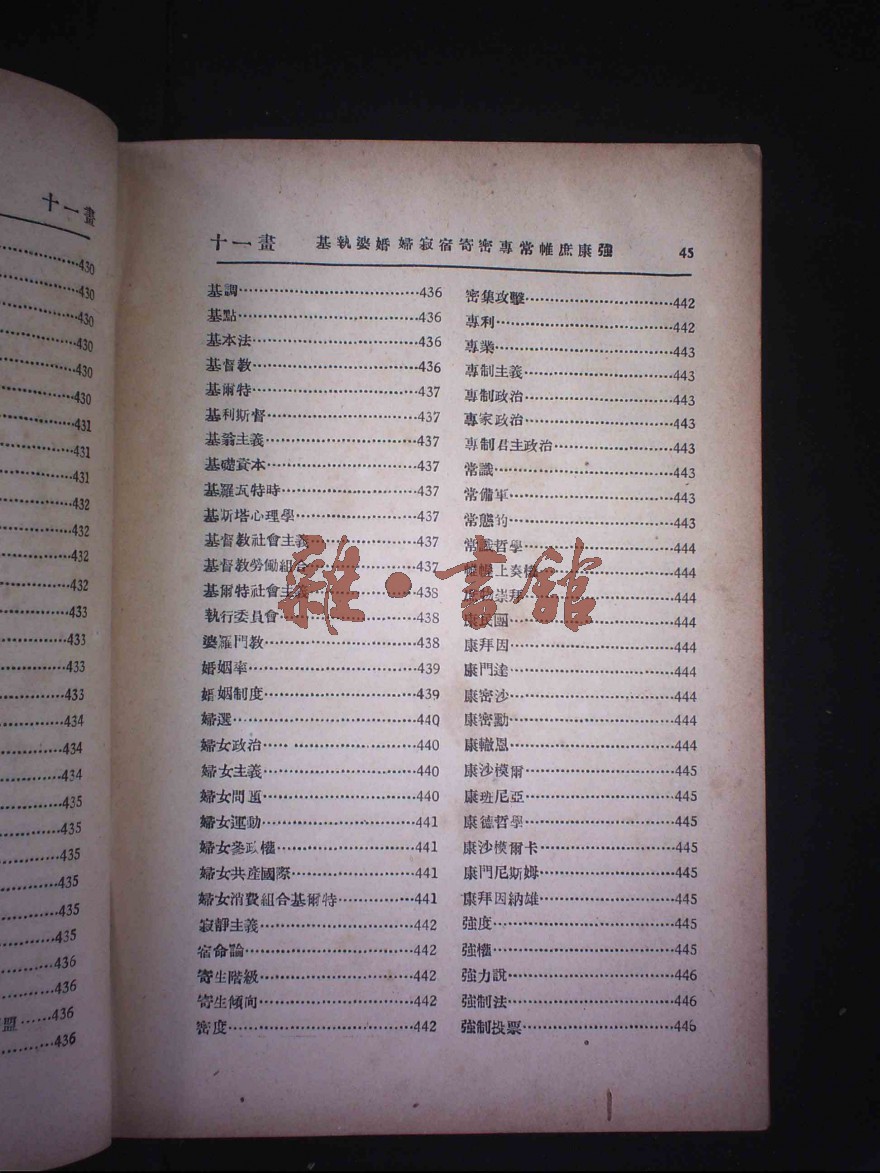 十一畫
430
430
430
430
430
430
431
431
431
432
432
432
432
433
433
433
433
434
434
434
435
435
435
435
435
435
436
436
盟……436
436
十一畫 基執婆婚婦寂宿寄密專常帷庶康強 45
基調……436
基點……436
基本法……436
基督教……436
基爾特……437
基利斯督……437
基翁主義……437
基礎資本……437
基羅瓦特時……437
基斯塔心理學……437
基督教社會主義……437
基督教勞働組合……437
基爾特社會主義……438
執行委員會……438
婆羅門教……438
婚姻率……439
婚姻制度……439
婦選……440
婦女政治……440
婦女主義……440
婦女問題……440
婦女運動……441
婦女參政權……441
婦女共產國際……441
婦女消費組合基爾特……441
寂靜主義……442
宿命論……442
寄生階級……442
寄生傾向……442
密度……442
密集攻擊……442
專利……442
專業……443
專制主義……443
專制政治……443
專家政治……443
專制君主政治……443
常識……443
常備軍……443
常態的……443
常識哲學……444
帷幄上奏權……444
庶物崇拜……444
康民團……444
康拜因……444
康門達……444
康密沙……444
康密勳……444
康轍恩……444
康沙模爾……445
康班尼亞……445
康德哲學……445
康沙模爾卡……445
康門尼斯姆……445
康拜因納雄……445
強度……445
強權……445
強力說……446
強制法……446
強制投票……446
雜·言館